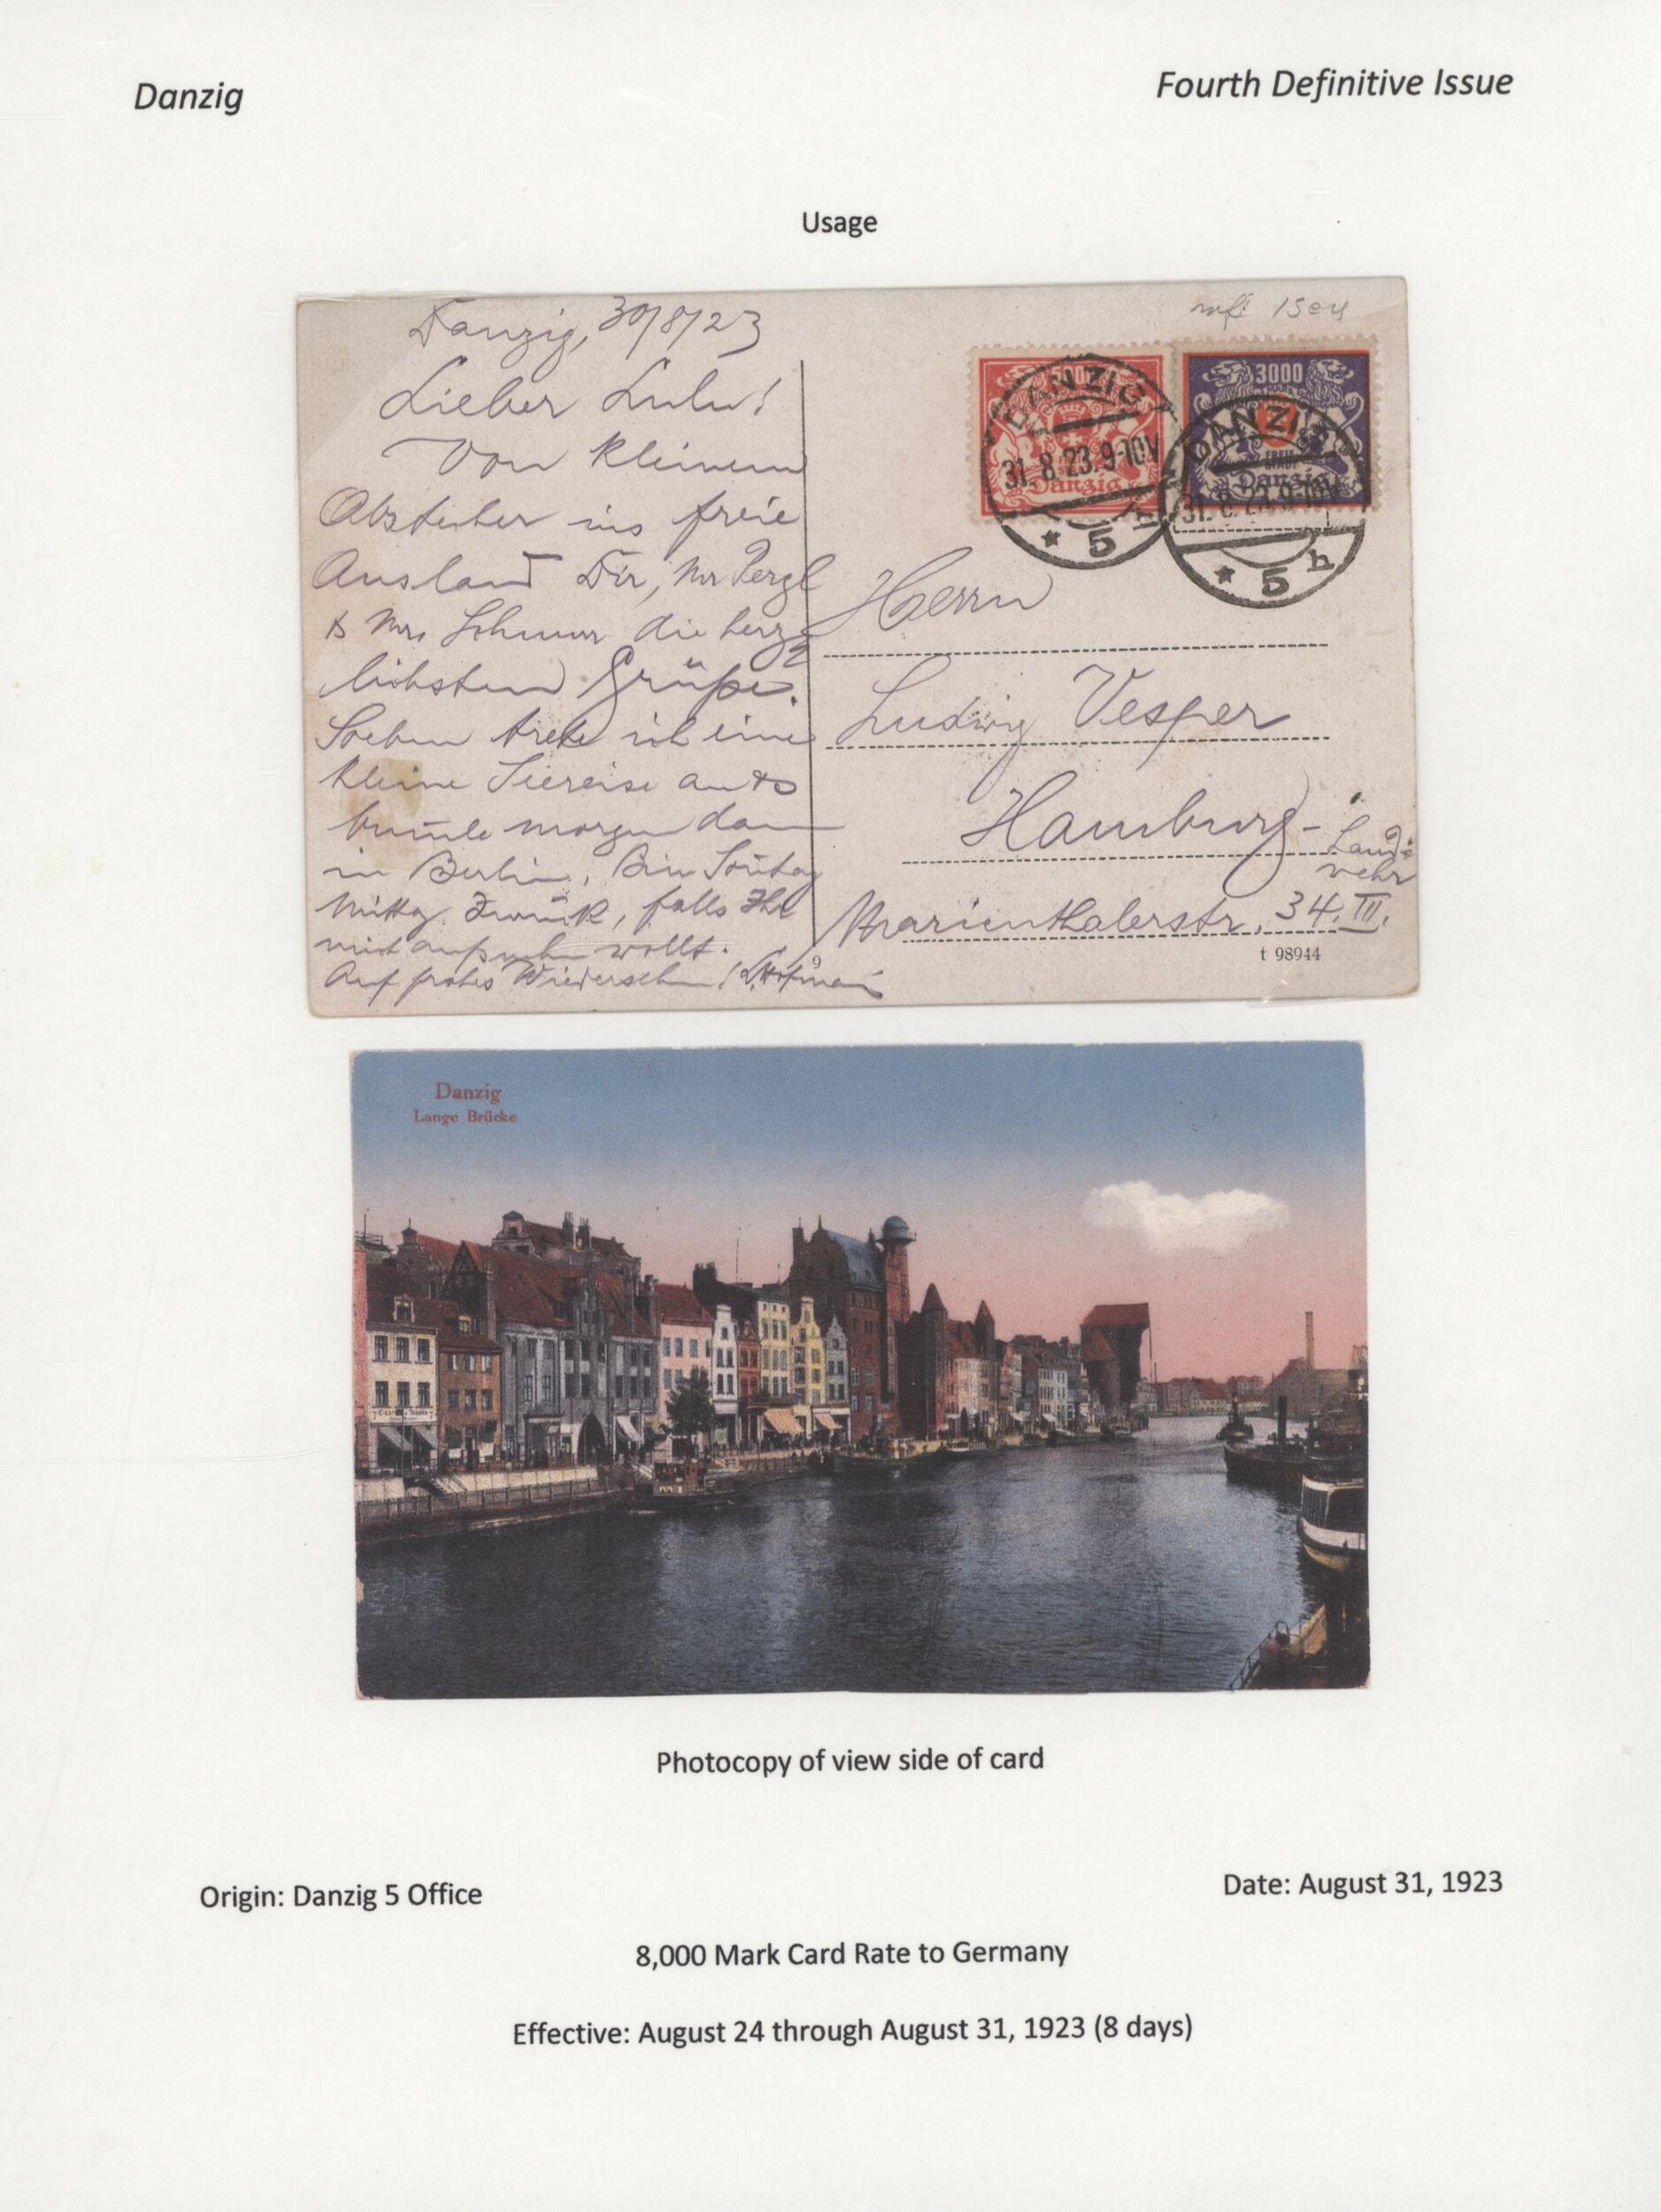 Danzig
Fourth Definitive Issue
Usage
Danzig, 30/8/23
Lieber Lulu!
Von kleinem
Abstecher ins freie
Ausland Dir, Mr Pergl
& Mrs die herz-
lichsten Grüße.
Soeben trete ich eine
kleine Seereise an &
morgen dann
in Berlin. Bin Sontag
Mittag zurück, falls Ihr
mich aufsuchen wollt.
Auf frohes Wiedersehn!
3000
Freie
Stadt
Danzig
Danzig
DANZIG
31.8.23.9-10V
* 5
DANZIG
31.8.23.9-10V
* 5 h
Herrn
Ludwig Vesper
Hamburg-
Landwehr
Marienthalerstr. 34. III.
t 98944
9
Danzig
Lange Brücke
Photocopy of view side of card
Origin: Danzig 5 Office
Date: August 31, 1923
8,000 Mark Card Rate to Germany
Effective: August 24 through August 31, 1923 (8 days)